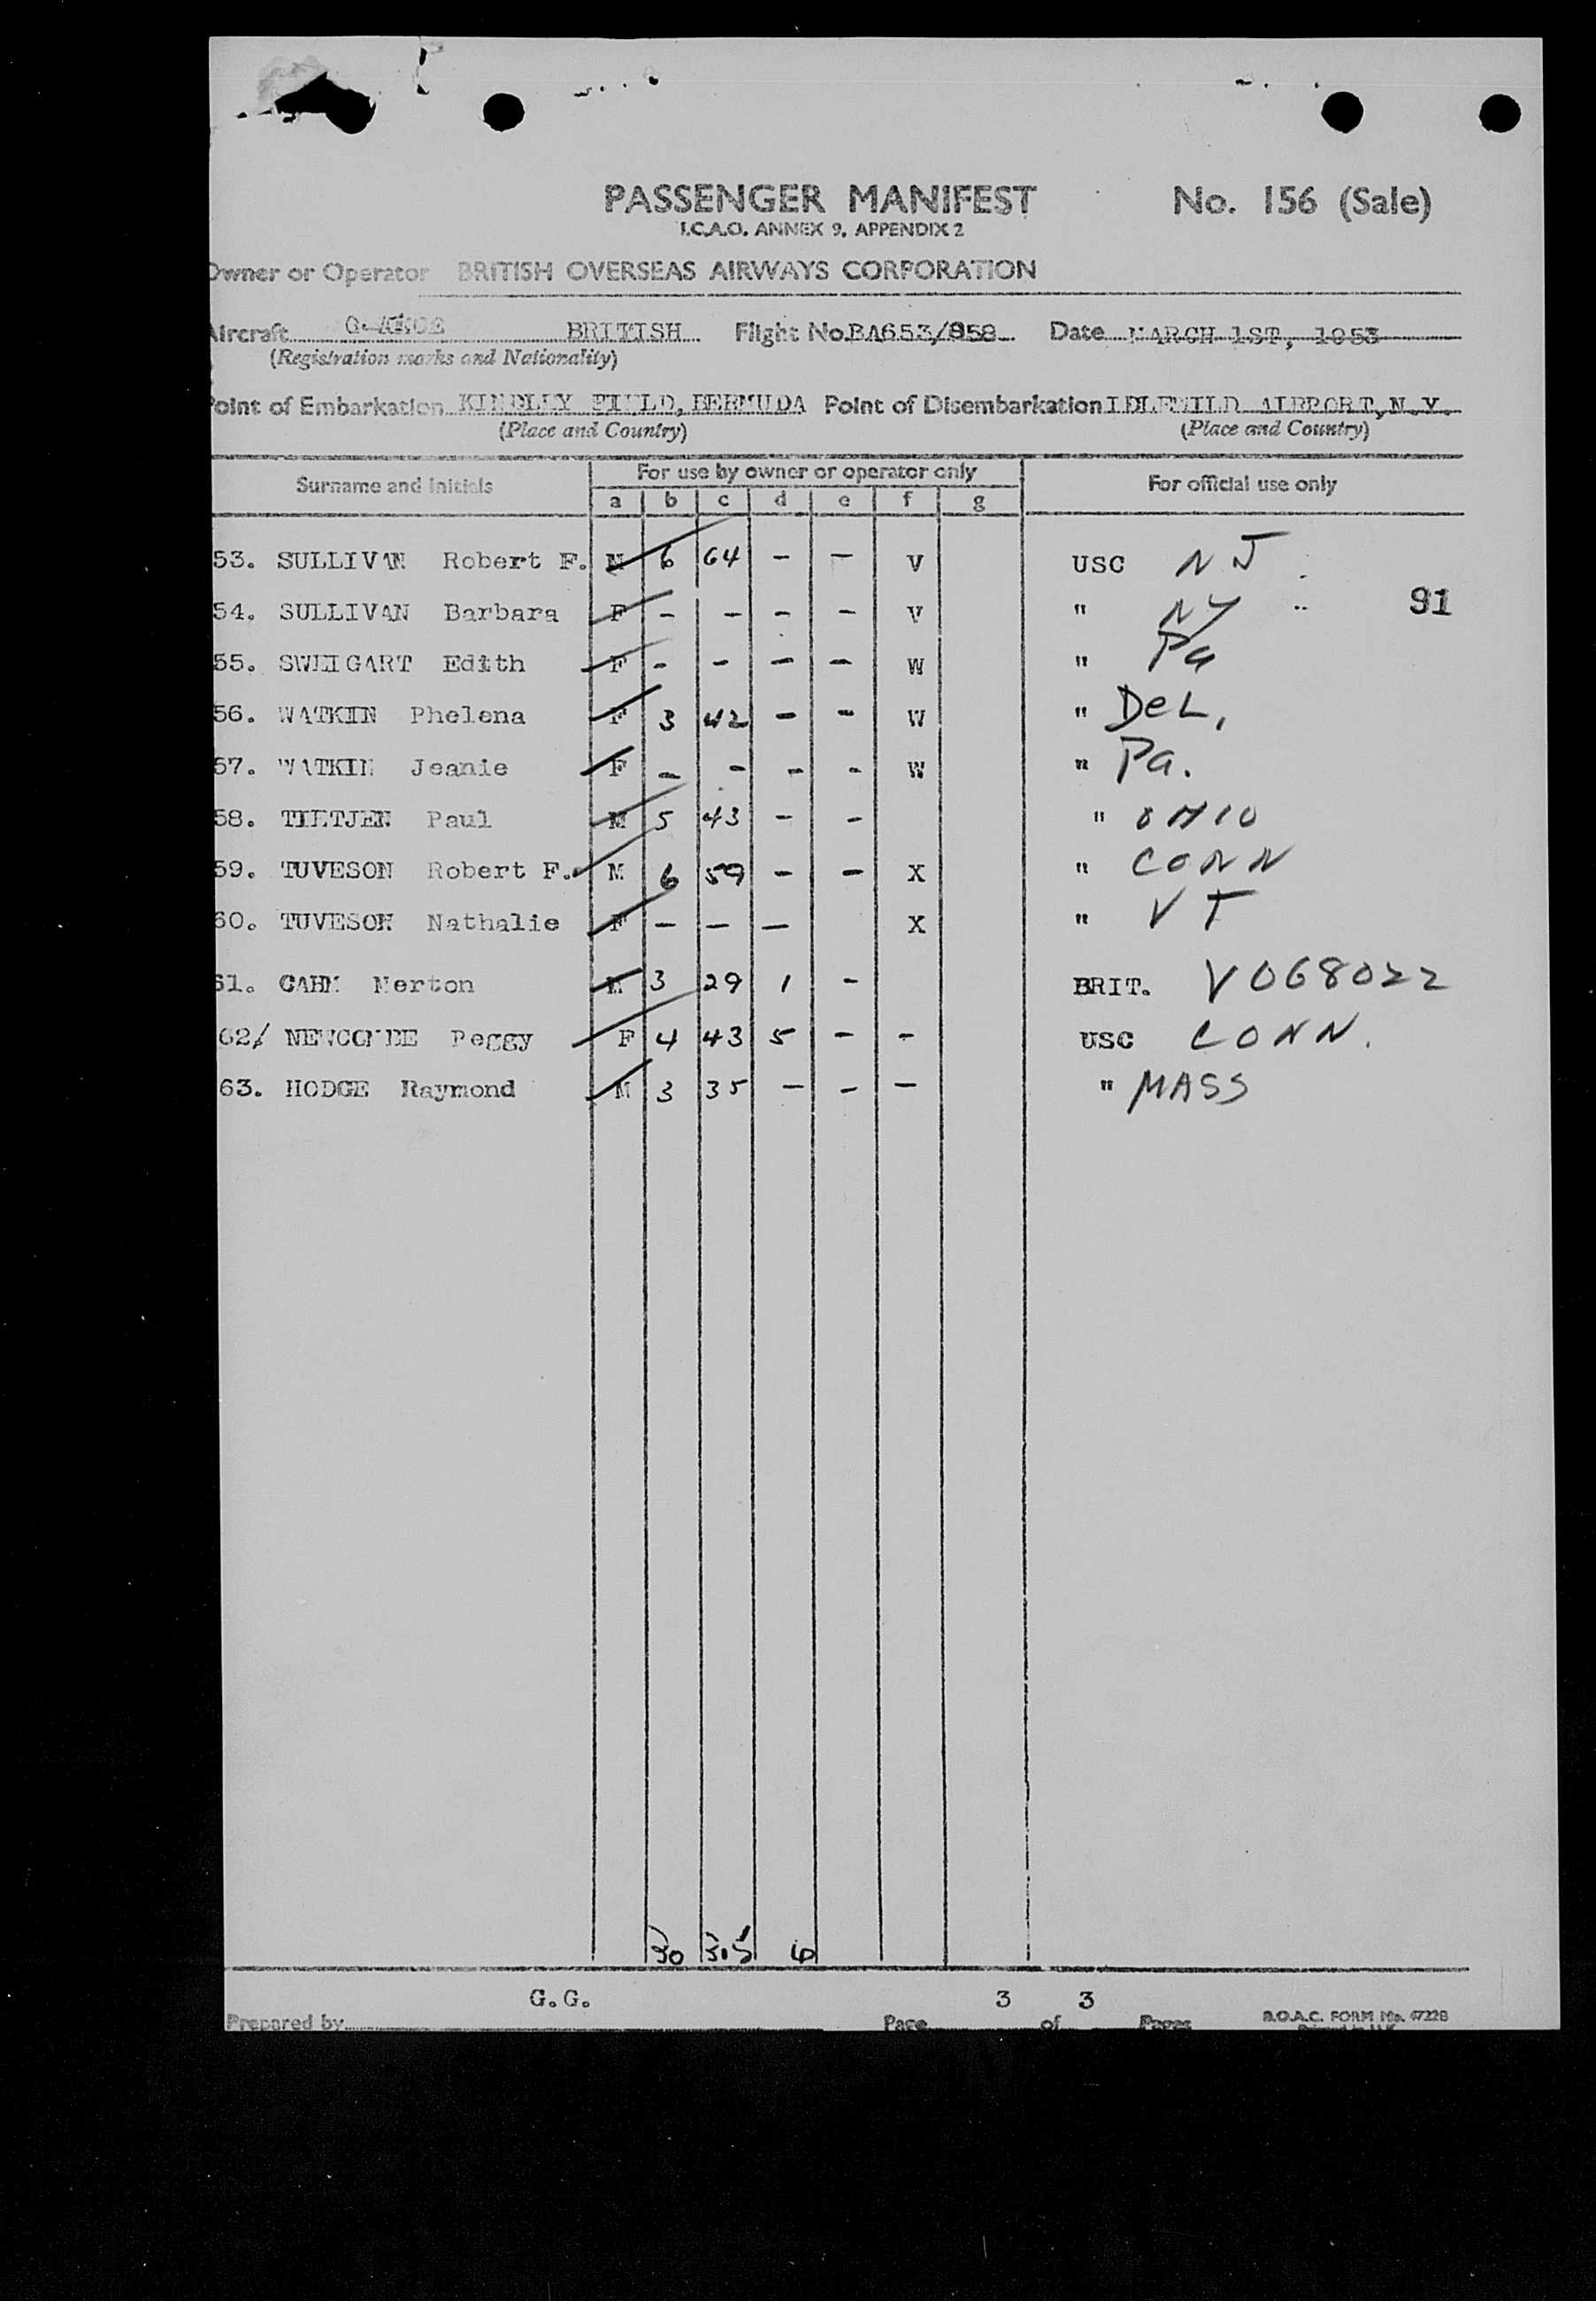 PASSENGER MANIFEST No. 156 (Sale)
I.C.A.O. ANNEX 9, APPENDIX 2
Owner or Operator BRITISH OVERSEAS AIRWAYS CORPORATION
Aircraft BRITISH Flight No. BA653/858 Date MARCH 1ST, 1953
(Registration marks and Nationality)
Point of Embarkation KINDLEY FIELD, BERMUDA Point of Disembarkation IDLEWILD AIRPORT, N.Y.
(Place and Country) (Place and Country)
Surname and initials For use by owner or operator only For official use only
a b c d e f g
53. SULLIVAN Robert F. M 6 64 - - V USC NJ
54. SULLIVAN Barbara F - - - - V " NY 91
55. SWEIGART Edith F - - - - W " Pa
56. WATKIN Phelena F 3 42 - - W " DeL,
57. WATKIN Jeanie F - - - - W " Pa.
58. TIETJEN Paul M 5 43 - - " OHIO
59. TUVESON Robert F. M 6 59 - - X " CONN
60. TUVESON Nathalie F - - - X " VT
61. CAHM Merton M 3 29 1 - BRIT. V068022
62/ NEWCOMBE Peggy F 4 43 5 - - USC CONN.
63. HODGE Raymond M 3 35 - - - " MASS
30 315 6
G.G. 3 3
Prepared by Page of Pages B.O.A.C. FORM No. 4722B